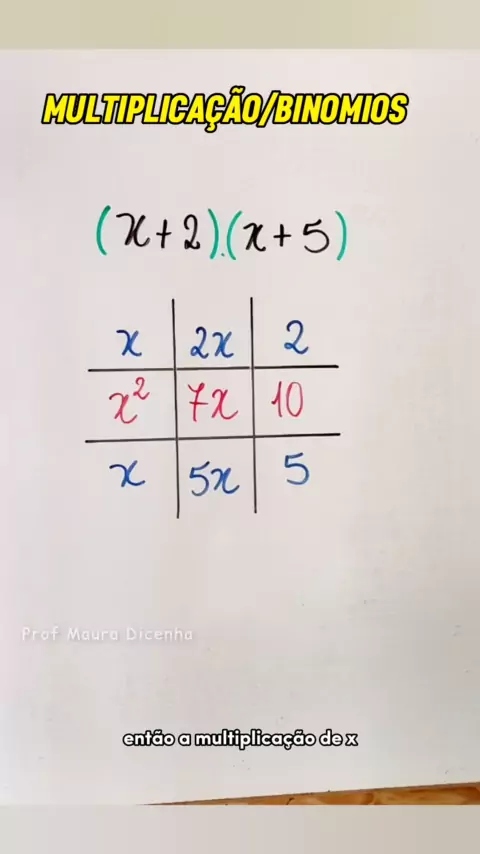 MULTIPLICAÇÃO/BINOMIOS
(x+2).(x+5)
x 2x 2
x² 7x 10
x 5x 5
Prof Maura Dicenha
então a multiplicação de x